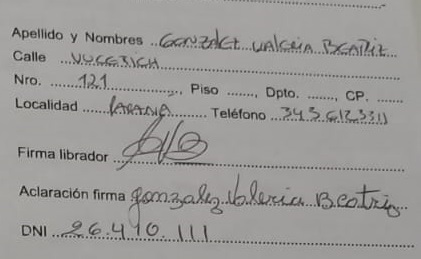 Apellido y Nombres ..GONZALEZ VALERIA BEATRIZ...
Calle ...VUCETICH...
Nro. ....121...., Piso ......., Dpto. ......., CP. .......
Localidad ......PARANA....... Teléfono ...343.6123311
Firma librador ...
Aclaración firma gonzalez Valeria Beatriz...
DNI ...26.410.111